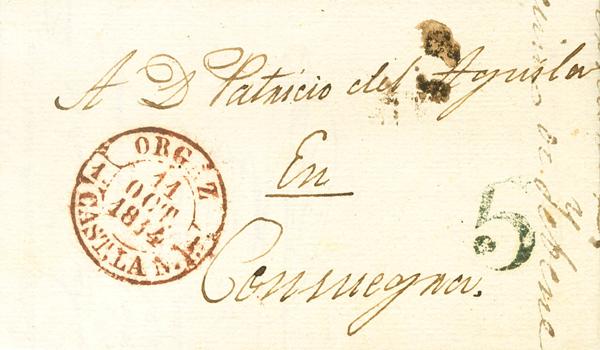 A D Patricio del Aguila
En
Consuegra.
ORGAZ
11
OCT
1844
CAST.LA N.
5